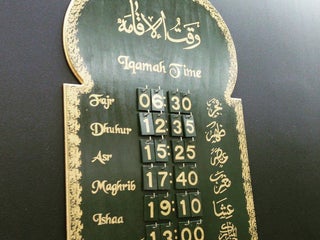 وقت الإقامة
Iqamah Time
Fajr 06 30 فجر
Dhuhur 12 35 ظهر
Asr 15 25 عصر
Maghrib 17 40 مغرب
Ishaa 19 10 عشاء
13 00